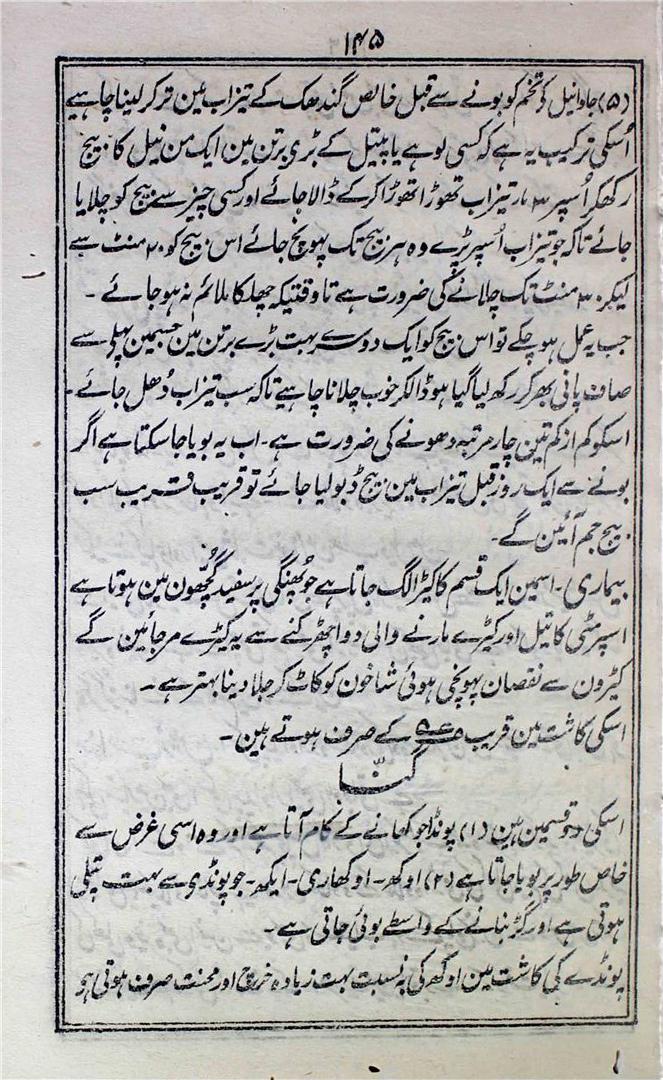 ۱۴۵
(۵) جاوانیل کی تخم کو بونے سے قبل خالص گندھک کے تیزاب مین تر کر لینا چاہیے
اُسکی ترکیب یہ ہے کہ کسی لوہے یا پیتل کے بڑی برتن مین ایک من نیل کا بیج
رکھکر اُسپر ۳ مار تیزاب تھوڑا تھوڑا کرکے ڈالا جائے اور کسی چیز سے بیج کو چلایا
جائے تاکہ جو تیزاب اُسپر پڑے وہ ہر بیج تک پہونچ جائے اس بیج کو ۲۰ منٹ سے
لیکر ۳۰ منٹ تک چلانے کی ضرورت ہے تا وقتیکہ چھلکا ملائم نہ ہو جائے -
جب یہ عمل ہو چکے تو اس بیج کو ایک دوسرے بہت بڑے برتن مین جسمین پہلی سے
صاف پانی بھر کر رکھ لیا گیا ہو ڈالکر خوب چلانا چاہیے تاکہ سب تیزاب دُھل جائے -
اسکو کم از کم تین چار مرتبہ دھونے کی ضرورت ہے - اب یہ بویا جا سکتا ہے اگر
بونے سے ایک روز قبل تیزاب مین بیج ڈبو لیا جائے تو قریب قریب سب
بیج جم آئین گے -
بیماری - اسمین ایک قسم کا کیڑا لگ جاتا ہے جو پُھنگی پر سفید گُچھون مین ہوتا ہے
اسپر مٹی کا تیل اور کیڑے مارنے والی دوا چھڑکنے سے یہ کیڑے مر جائین گے
کیڑون سے نقصان پہونچی ہوئی شاخون کو کاٹ کر جلا دینا بہتر ہے -
اسکی کاشت مین قریب کے صرف ہوتے ہین -
گنّا
اسکی دو قسمین ہین (۱) پونڈا جو کھانے کے کام آتا ہے اور وہ اسی غرض سے
خاص طور پر بویا جاتا ہے (۲) اوکھ - اوکھاری - ایکھ - جو پونڈی سے بہت پتلی
ہوتی ہے اور گڑ بنانے کے واسطے بوئی جاتی ہے -
پونڈے کی کاشت مین اوکھ کی بہ نسبت بہت زیادہ خرچ اور محنت صرف ہوتی ہو